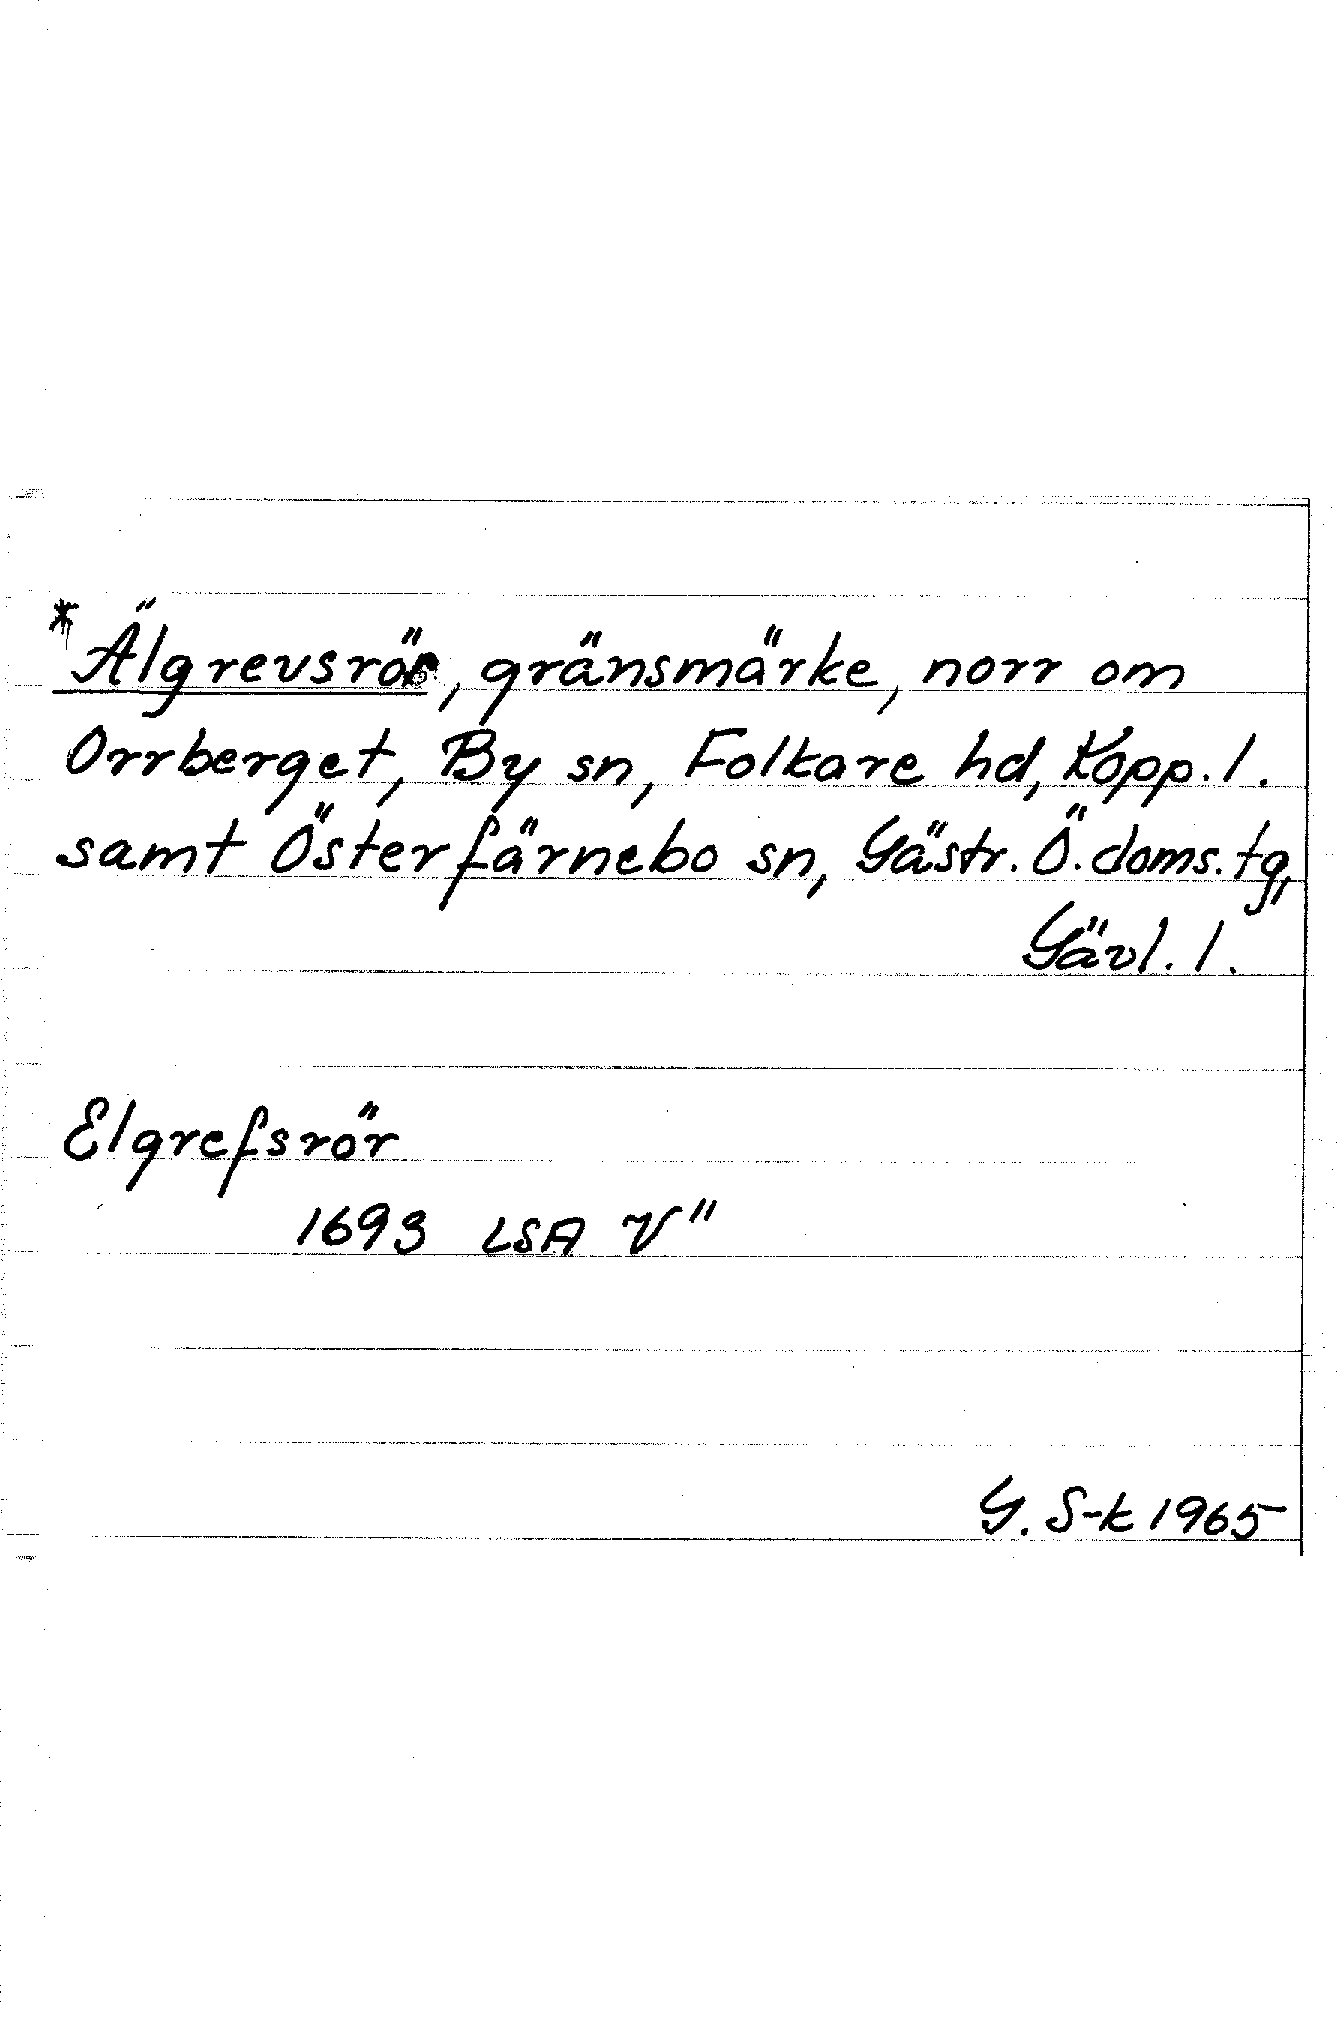 *Älgrevsrör, gränsmärke, norr om
Orrberget, By sn, Folkare hd, Kopp. l.
samt Österfärnebo sn, Gästr. Ö. doms. tg,
Gävl. l.
Elgrefsrör
1693 LSA V"
G. S-k 1965